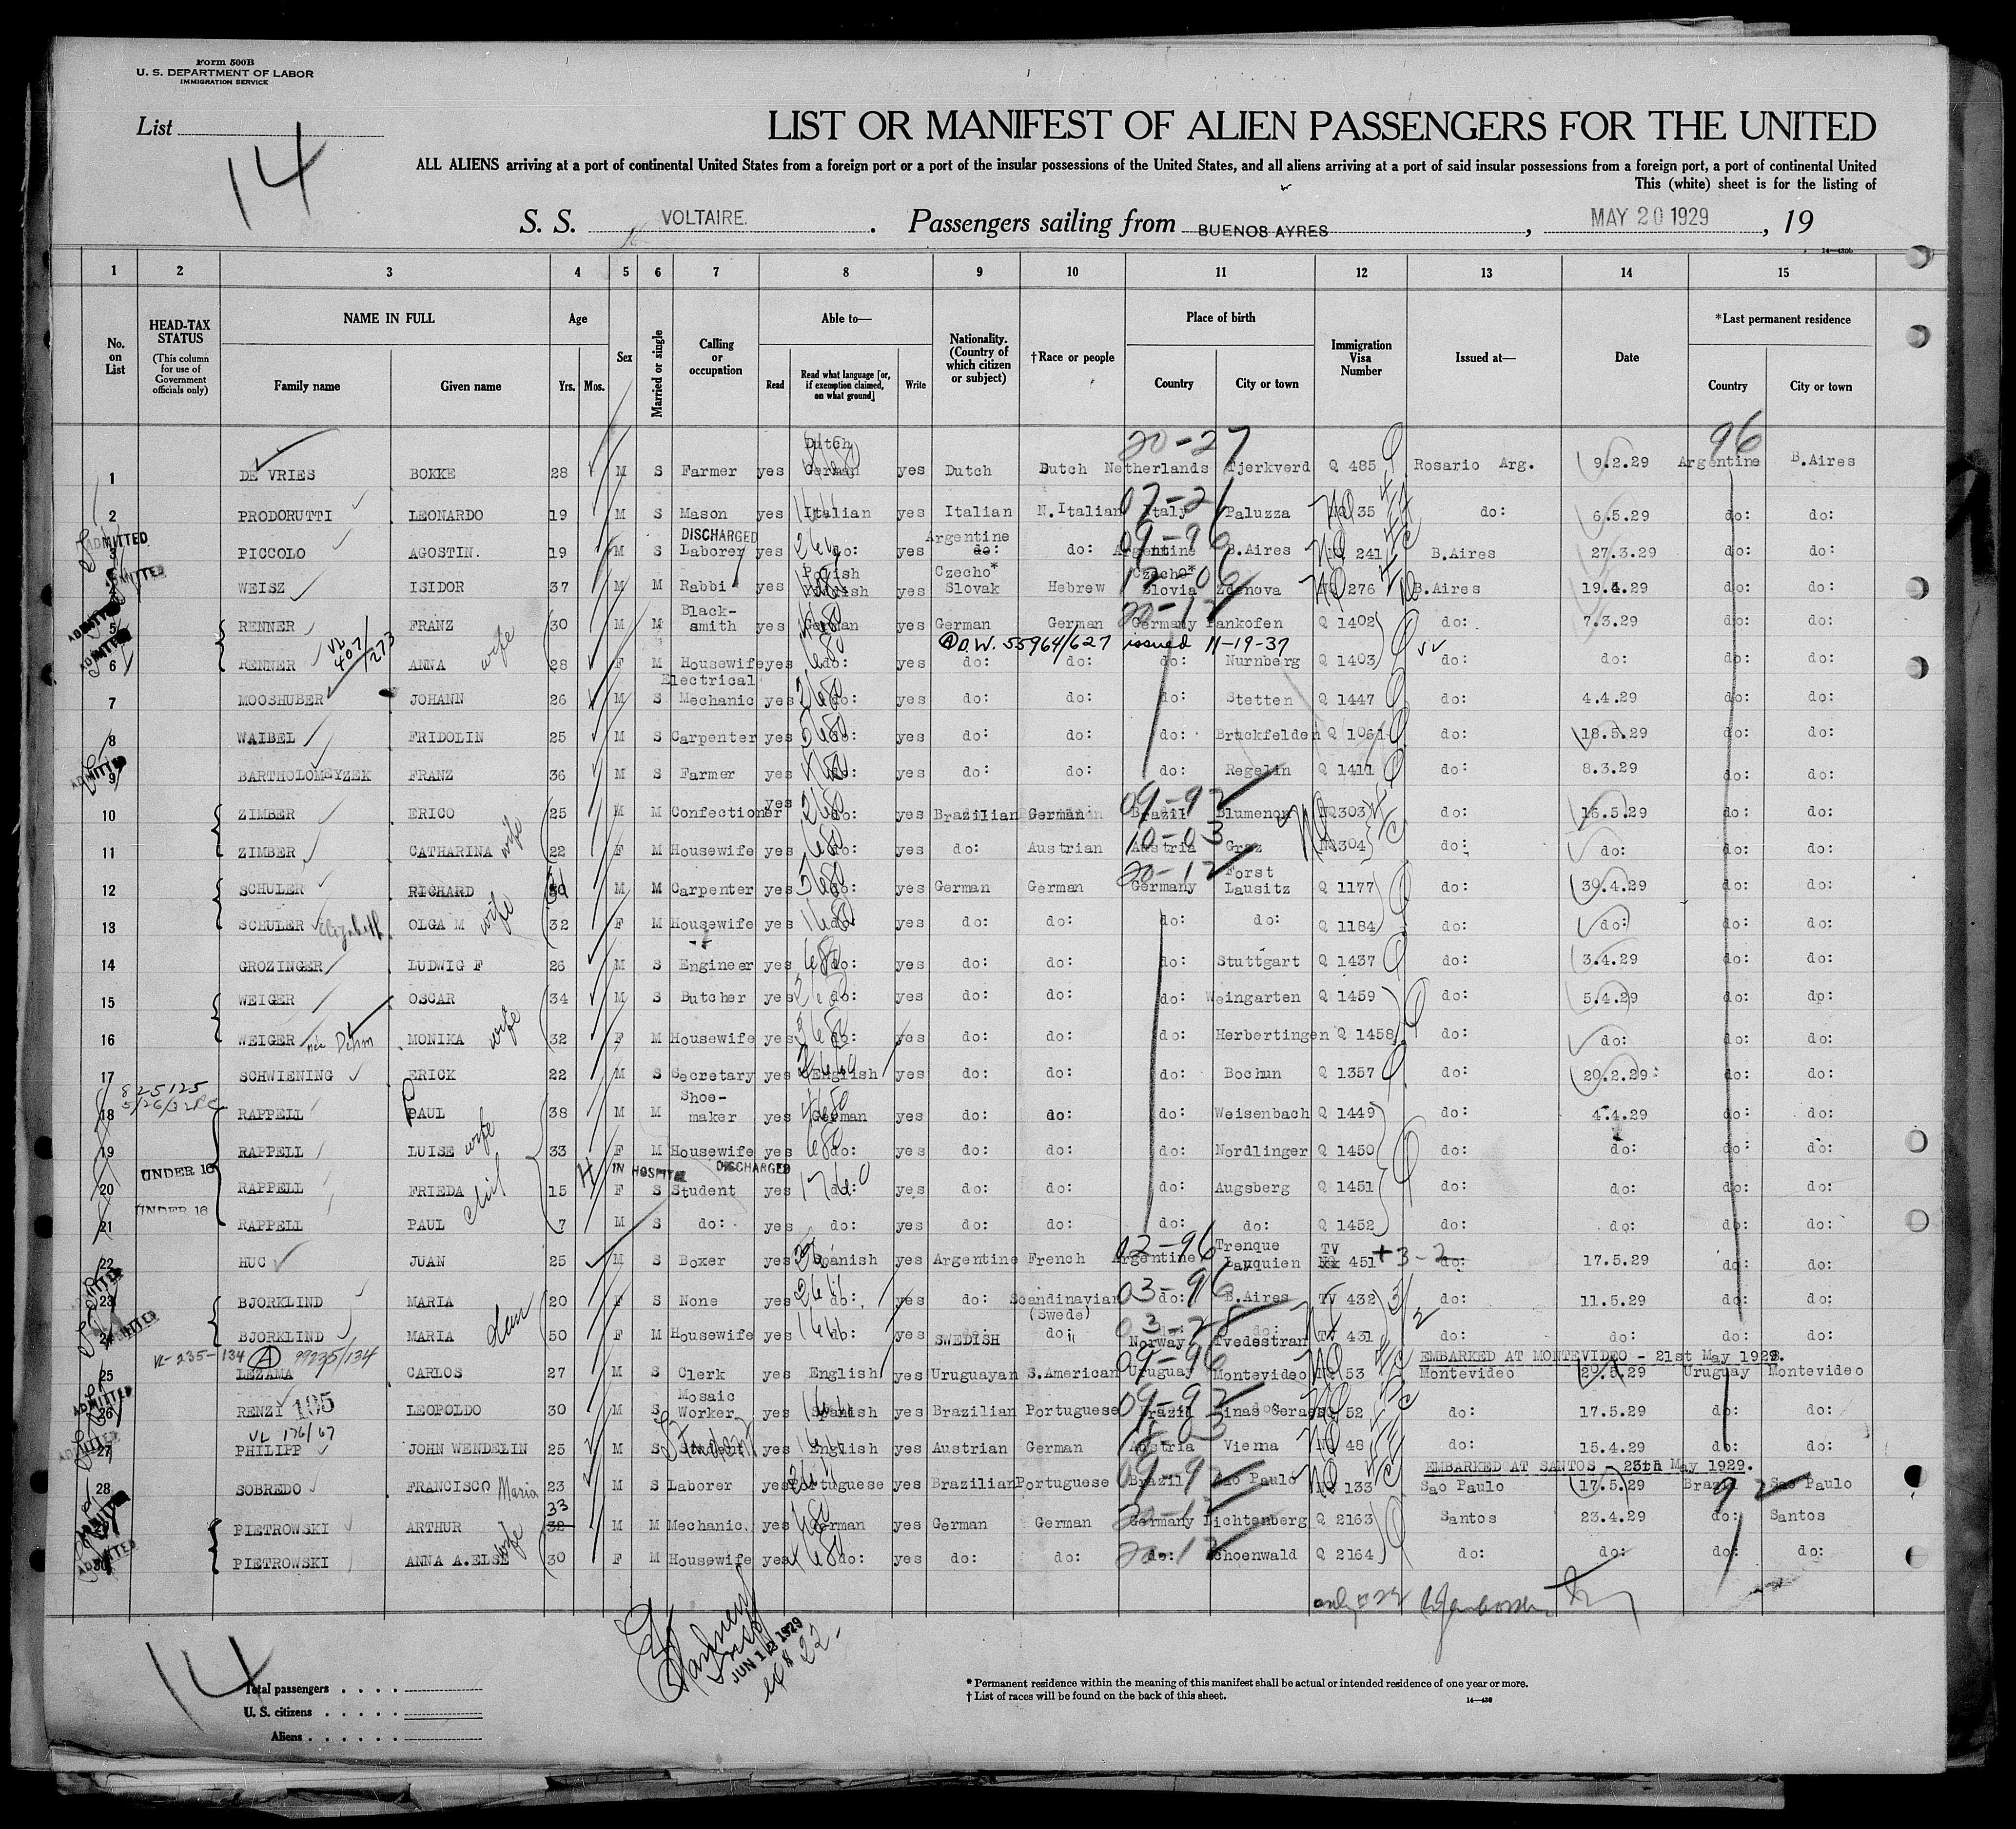 Form 500B
U. S. DEPARTMENT OF LABOR
IMMIGRATION SERVICE
List
14
LIST OR MANIFEST OF ALIEN PASSENGERS FOR THE UNITED
ALL ALIENS arriving at a port of continental United States from a foreign port or a port of the insular possessions of the United States, and all aliens arriving at a port of said insular possessions from a foreign port, a port of continental United
This (white) sheet is for the listing of
S. S. VOLTAIRE. Passengers sailing from BUENOS AYRES, MAY 20 1929, 19
14—430b
1 2 3 4 5 6 7 8 9 10 11 12 13 14 15
No. on List
HEAD-TAX STATUS (This column for use of Government officials only)
NAME IN FULL Family name Given name
Age Yrs. Mos.
Sex
Married or single
Calling or occupation
Able to— Read Read what language [or, if exemption claimed, on what ground] Write
Nationality. (Country of which citizen or subject)
†Race or people
Place of birth Country City or town
Immigration Visa Number
Issued at—
Date
*Last permanent residence Country City or town
20-27 96
1 DE VRIES BOKKE 28 M S Farmer yes Dutch German yes Dutch Dutch Netherlands Tjerkverd Q 485 Rosario Arg. 9.2.29 Argentine B.Aires
07-21
2 PRODORUTTI LEONARDO 19 M S Mason yes Italian yes Italian N.Italian Italy Paluzza NQ 35 do: 6.5.29 do: do:
ADMITTED DISCHARGED 09-96
3 PICCOLO AGOSTIN. 19 M S Laborer yes do: yes Argentine do: do: Argentine B.Aires NQ 241 B.Aires 27.3.29 do: do:
4 WEISZ ISIDOR 37 M M Rabbi yes Polish yes Czecho* Slovak Hebrew Czecho* Slovia Zdenova NQ 276 B.Aires 19.4.29 do: do:
ADMITTED
5 RENNER FRANZ 30 M M Black- smith yes German yes German German Germany Q 1402 do: 7.3.29 do: do:
VL 407/273 wife D.W. 55964/627 issued 11-19-37
6 RENNER ANNA 28 F M Housewife yes do: yes do: do: do: Nurnberg Q 1403 do: do: do: do:
7 MOOSHUBER JOHANN 26 M S Electrical Mechanic yes do: yes do: do: do: Stetten Q 1447 do: 4.4.29 do: do:
8 WAIBEL FRIDOLIN 25 M S Carpenter yes do: yes do: do: do: Bruckfelden Q 1061 do: 18.5.29 do: do:
ADMITTED
9 BARTHOLOMEYZEK FRANZ 36 M S Farmer yes do: yes do: do: do: Regelin Q 1411 do: 8.3.29 do: do:
09-92
10 ZIMBER ERICO 25 M M Confectioner yes do: yes Brazilian German Brazil Blumenon NQ303 do: 16.5.29 do: do:
wife 10-03
11 ZIMBER CATHARINA 22 F M Housewife yes do: yes do: Austrian Austria Graz NQ304 do: do: do: do:
20-12
12 SCHULER RICHARD M M Carpenter yes do: yes German German Germany Forst Lausitz Q 1177 do: 30.4.29 do: do:
13 SCHULER Elizabeth OLGA M wife 32 F M Housewife yes do: yes do: do: do: do: Q 1184 do: do: do: do:
14 GROZINGER LUDWIG F 26 M S Engineer yes do: yes do: do: do: Stuttgart Q 1437 do: 3.4.29 do: do:
15 WEIGER OSCAR 34 M S Butcher yes do: yes do: do: do: Weingarten Q 1459 do: 5.4.29 do: do:
16 WEIGER née Dehm MONIKA wife 32 F M Housewife yes do: yes do: do: do: Herbertingen Q 1458 do: do: do: do:
17 SCHWIENING ERICK 22 M S Secretary yes English yes do: do: do: Bochun Q 1357 do: 20.2.29 do: do:
825125
5/26/32
18 RAPPELL PAUL 38 M M Shoe- maker yes German yes do: do: do: Weisenbach Q 1449 do: 4.4.29 do: do:
19 RAPPELL LUISE wife 33 F M Housewife yes do: yes do: do: do: Nordlinger Q 1450 do: do: do: do:
UNDER 16 IN HOSPITAL DISCHARGED
20 RAPPELL FRIEDA 15 F S Student yes do: yes do: do: do: Augsberg Q 1451 do: do: do: do:
UNDER 16
21 RAPPELL PAUL 7 M S do: yes do: yes do: do: do: do: Q 1452 do: do: do: do:
02-96
22 HUC JUAN 25 M S Boxer yes Spanish yes Argentine French Argentine Trenque Lauquien TV 451 +3-2 do: 17.5.29 do: do:
ADMITTED 03-96
23 BJORKLIND MARIA 20 F S None yes do: yes do: Scandinavian (Swede) do: B.Aires TV 432 do: 11.5.29 do: do:
ADMITTED
24 BJORKLIND MARIA 50 F M Housewife yes do: yes SWEDISH do: Norway Tvedestran TV 431 do: do: do: do:
VL-235-134 A 99235/134 EMBARKED AT MONTEVIDEO - 21st May 1929.
09-96
25 LEZAMA CARLOS 27 M S Clerk yes English yes Uruguayan S.American Uruguay Montevideo 53 Montevideo 29.5.29 Uruguay Montevideo
ADMITTED 09-92
26 RENZI 195 LEOPOLDO 30 M S Mosaic Worker yes Spanish yes Brazilian Portuguese Brazil Minas Geras 52 do: 17.5.29 do: do:
VL 176/67
ADMITTED
27 PHILIPP JOHN WENDELIN 25 M S Student yes English yes Austrian German Austria Vienna NQ 48 do: 15.4.29 do: do:
EMBARKED AT SANTOS - 25th May 1929.
09-92 92
28 SOBREDO FRANCISCO Maria 23 M S Laborer yes Portuguese yes Brazilian Portuguese Brazil Sao Paulo NQ 133 Sao Paulo 17.5.29 Brazil Sao Paulo
20-12
PIETROWSKI ARTHUR 33 32 M M Mechanic. yes German yes German German Germany Lichtenberg Q 2163 Santos 23.4.29 do: Santos
ADMITTED wife 20-12
30 PIETROWSKI ANNA A.ELSE 30 F M Housewife yes do: yes do: do: do: Schoenwald Q 2164 do: do: do: do:
JUN 12 1929
14
Total passengers . . . .
U. S. citizens . . . . .
Aliens . . . . . .
* Permanent residence within the meaning of this manifest shall be actual or intended residence of one year or more.
† List of races will be found on the back of this sheet.
14—430